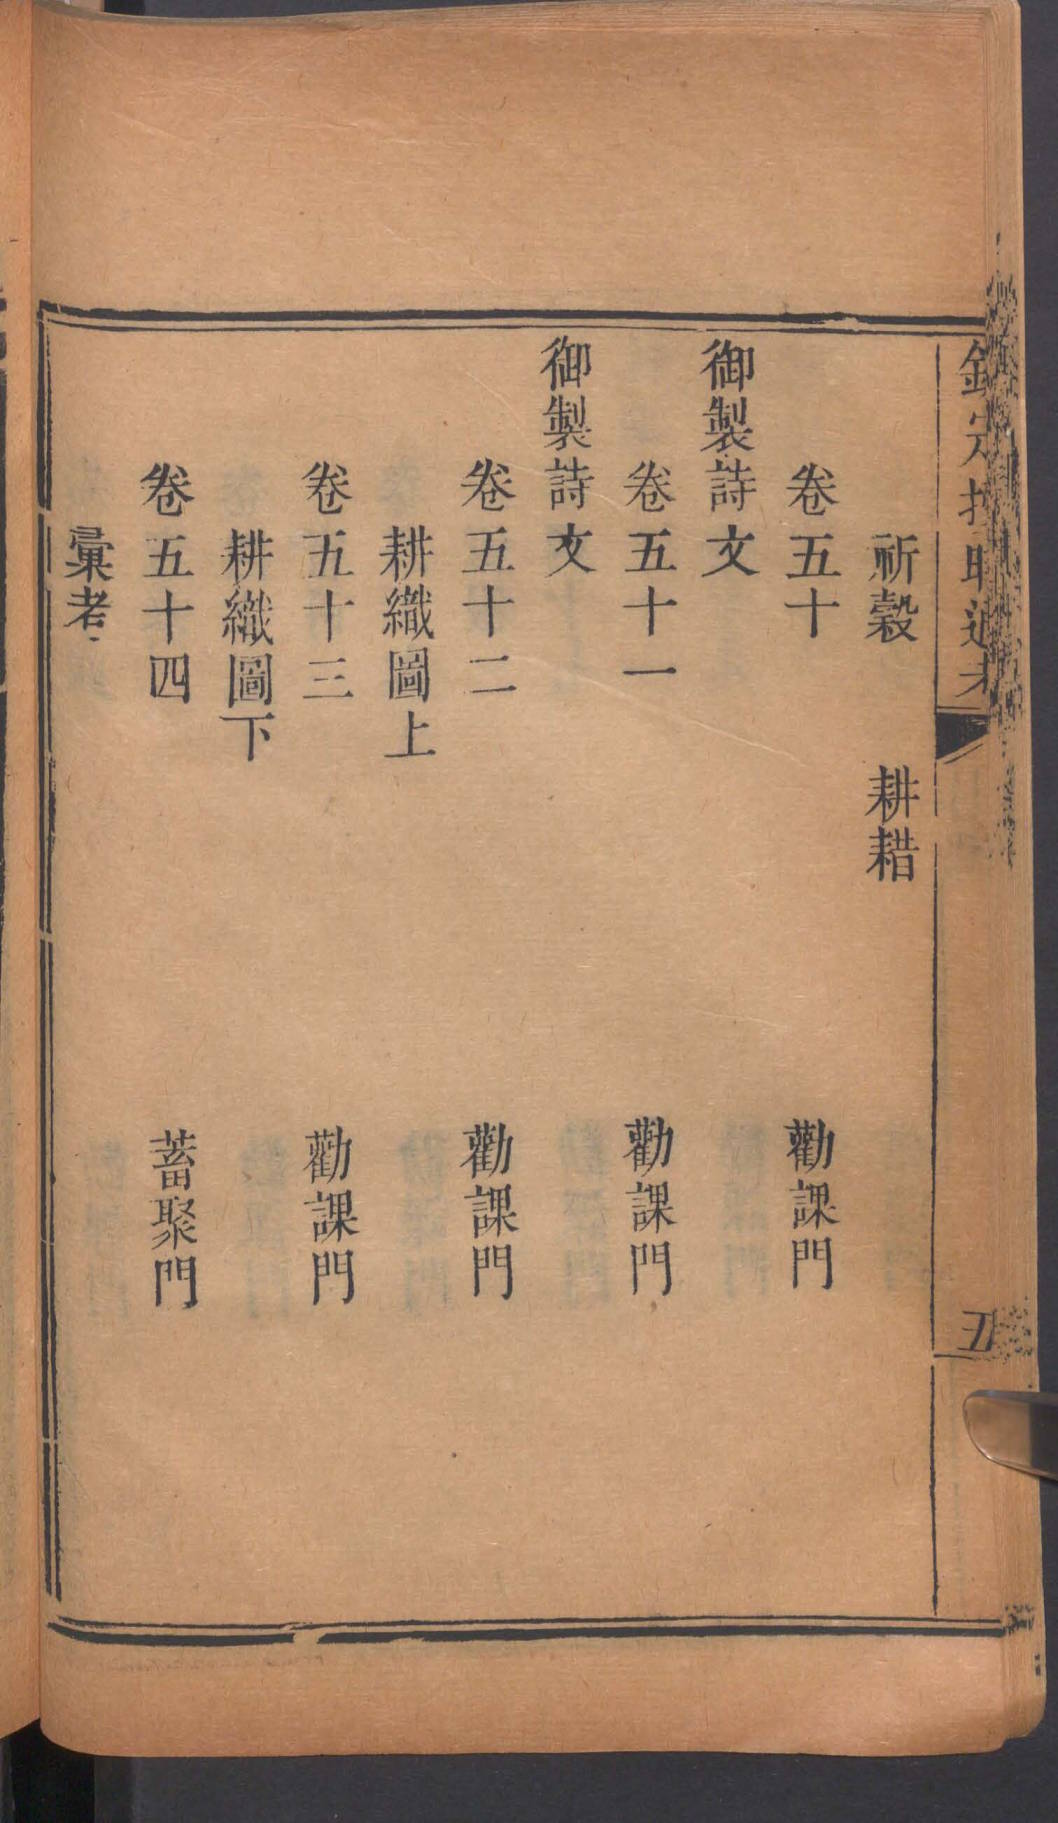 欽定授時通考
五
祈穀 耕耤
卷五十 勸課門
御製詩文
卷五十一 勸課門
御製詩文
卷五十二 勸課門
耕織圖上
卷五十三 勸課門
耕織圖下
卷五十四 蓄聚門
彙考